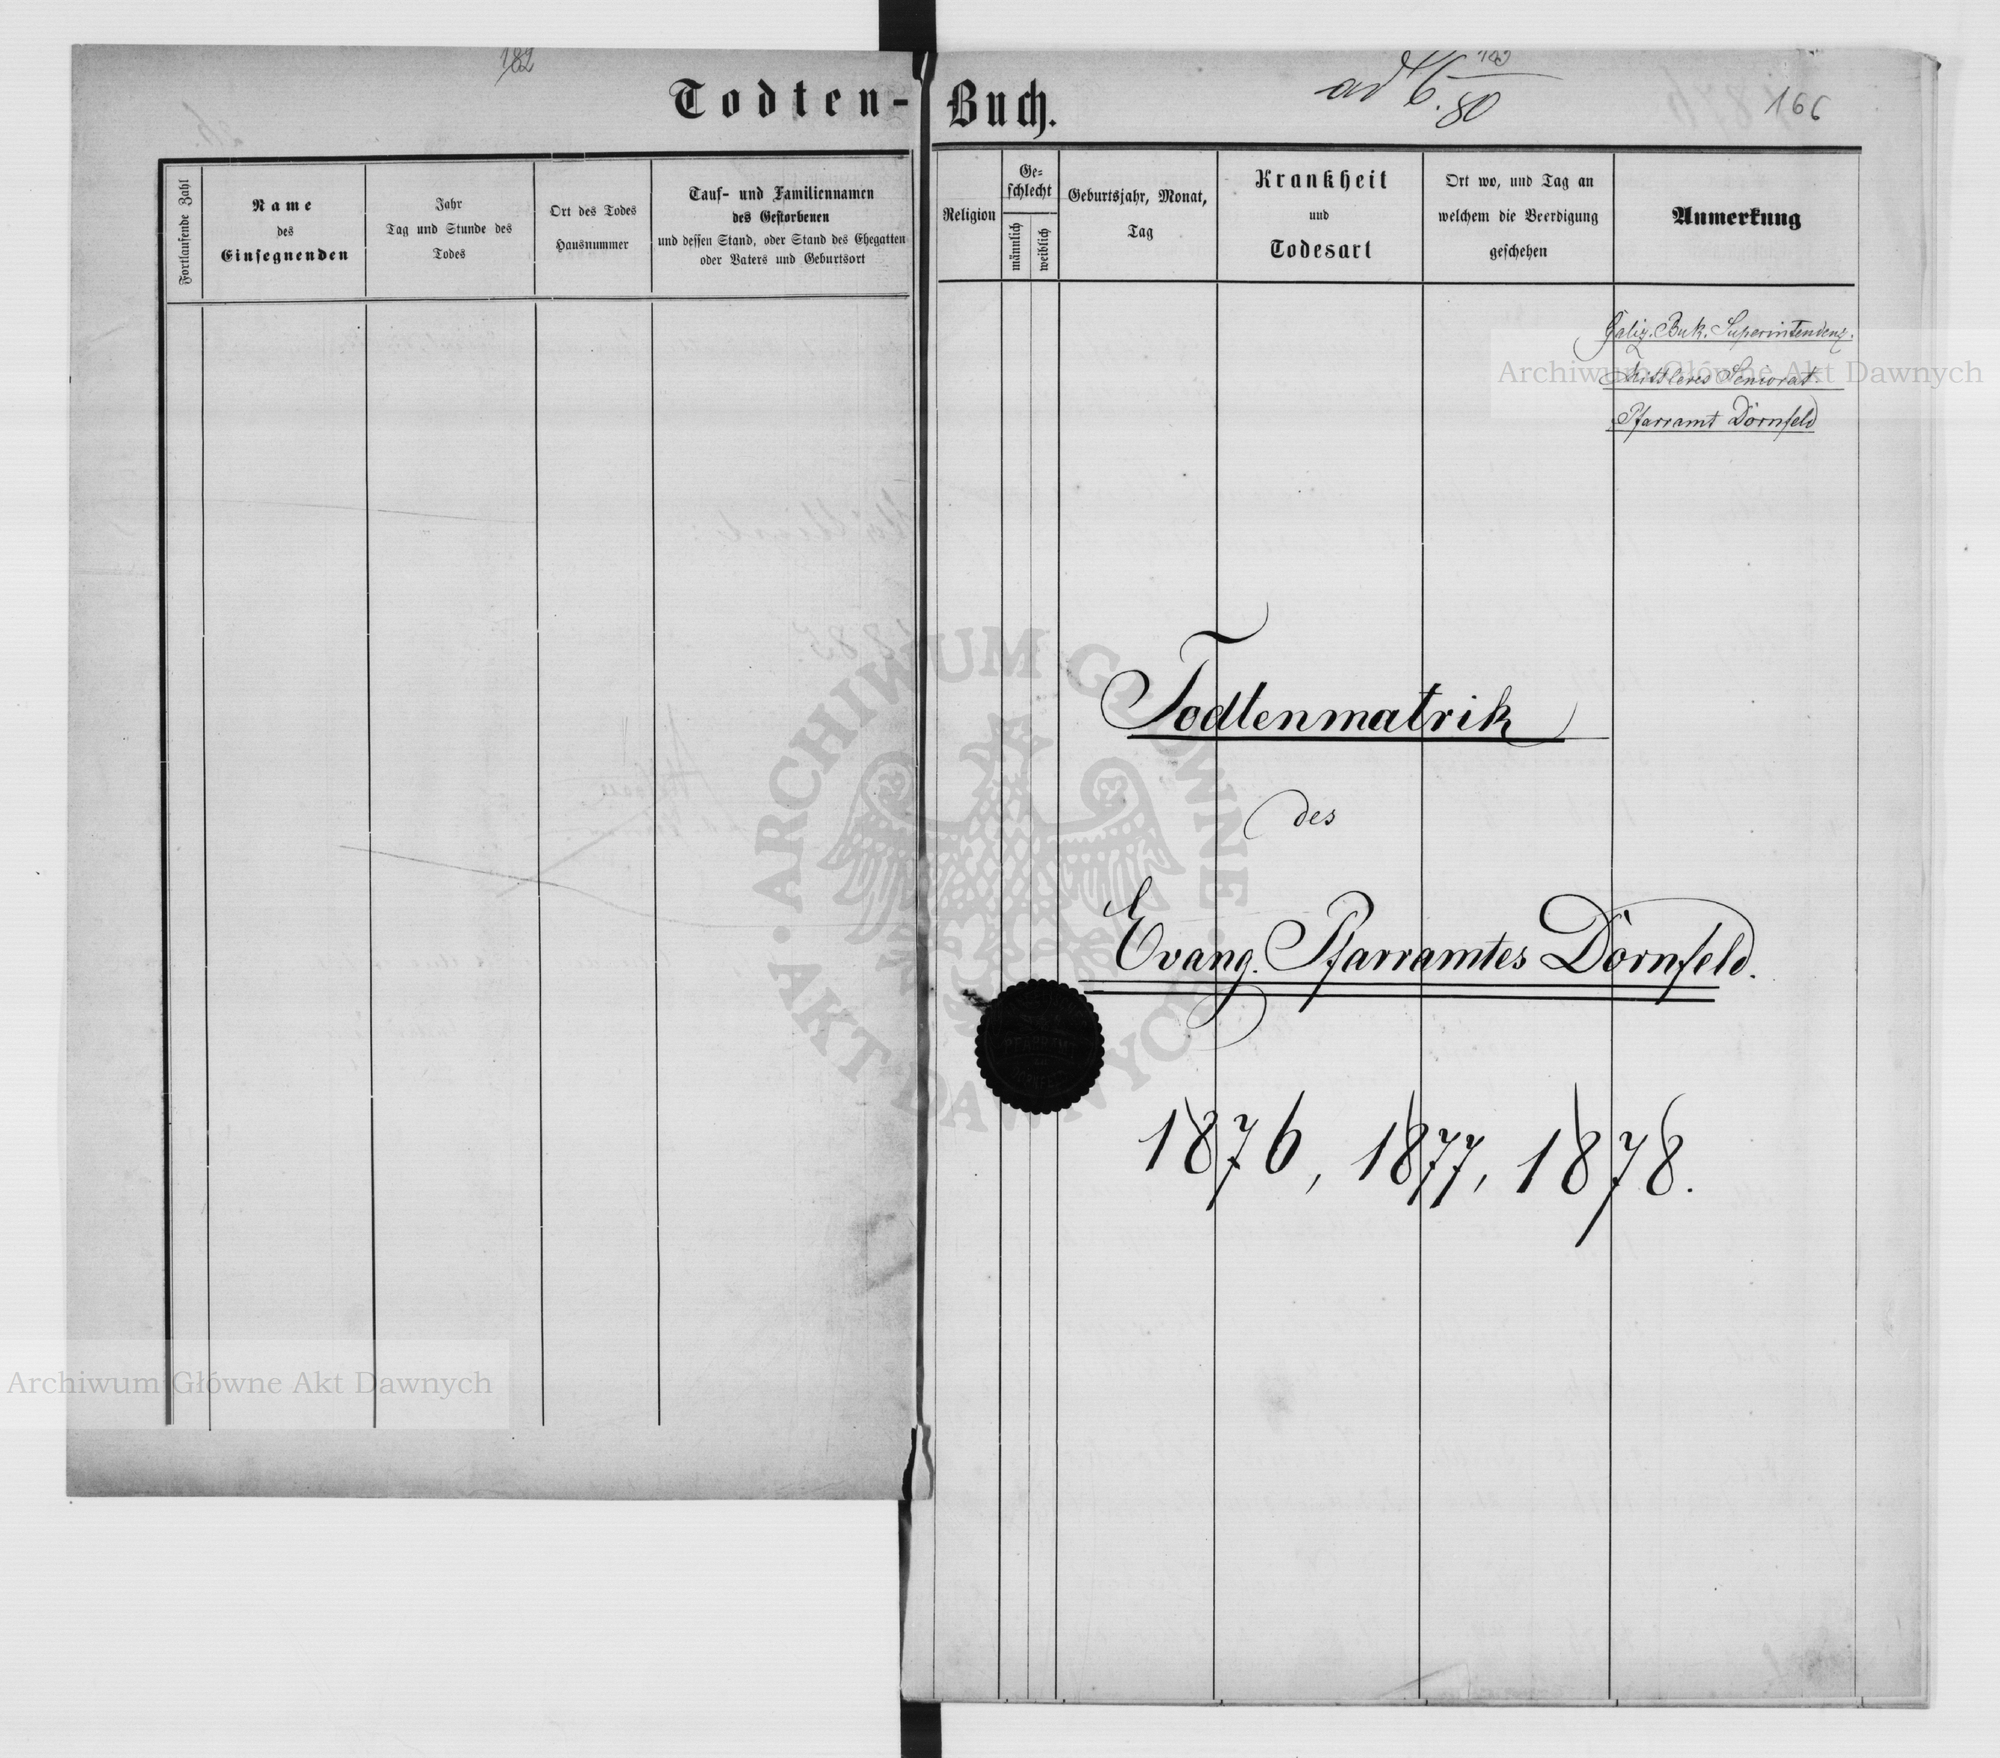 182
Todten-Buch.
166
Fortlaufende Zahl
Name
des
Einsegnenden
Jahr
Tag und Stunde des
Todes
Ort des Todes
Hausnummer
Tauf- und Familiennamen
des Gestorbenen
und dessen Stand, oder Stand des Ehegatten
oder Vaters und Geburtsort
Religion
Ge-
schlecht
männlich
weiblich
Geburtsjahr, Monat,
Tag
Krankheit
und
Todesart
Ort wo, und Tag an
welchem die Beerdigung
geschehen
Anmerkung
Galiz. Buk. Superintendenz.
Mittleres Seniorat.
Pfarramt Dornfeld
Archiwum Główne Akt Dawnych
Todtenmatrik
des
Evang. Pfarramtes Dornfeld.
1876, 1877, 1878.
ARCHIWUM GŁÓWNE • AKT DAWNYCH •
Archiwum Główne Akt Dawnych